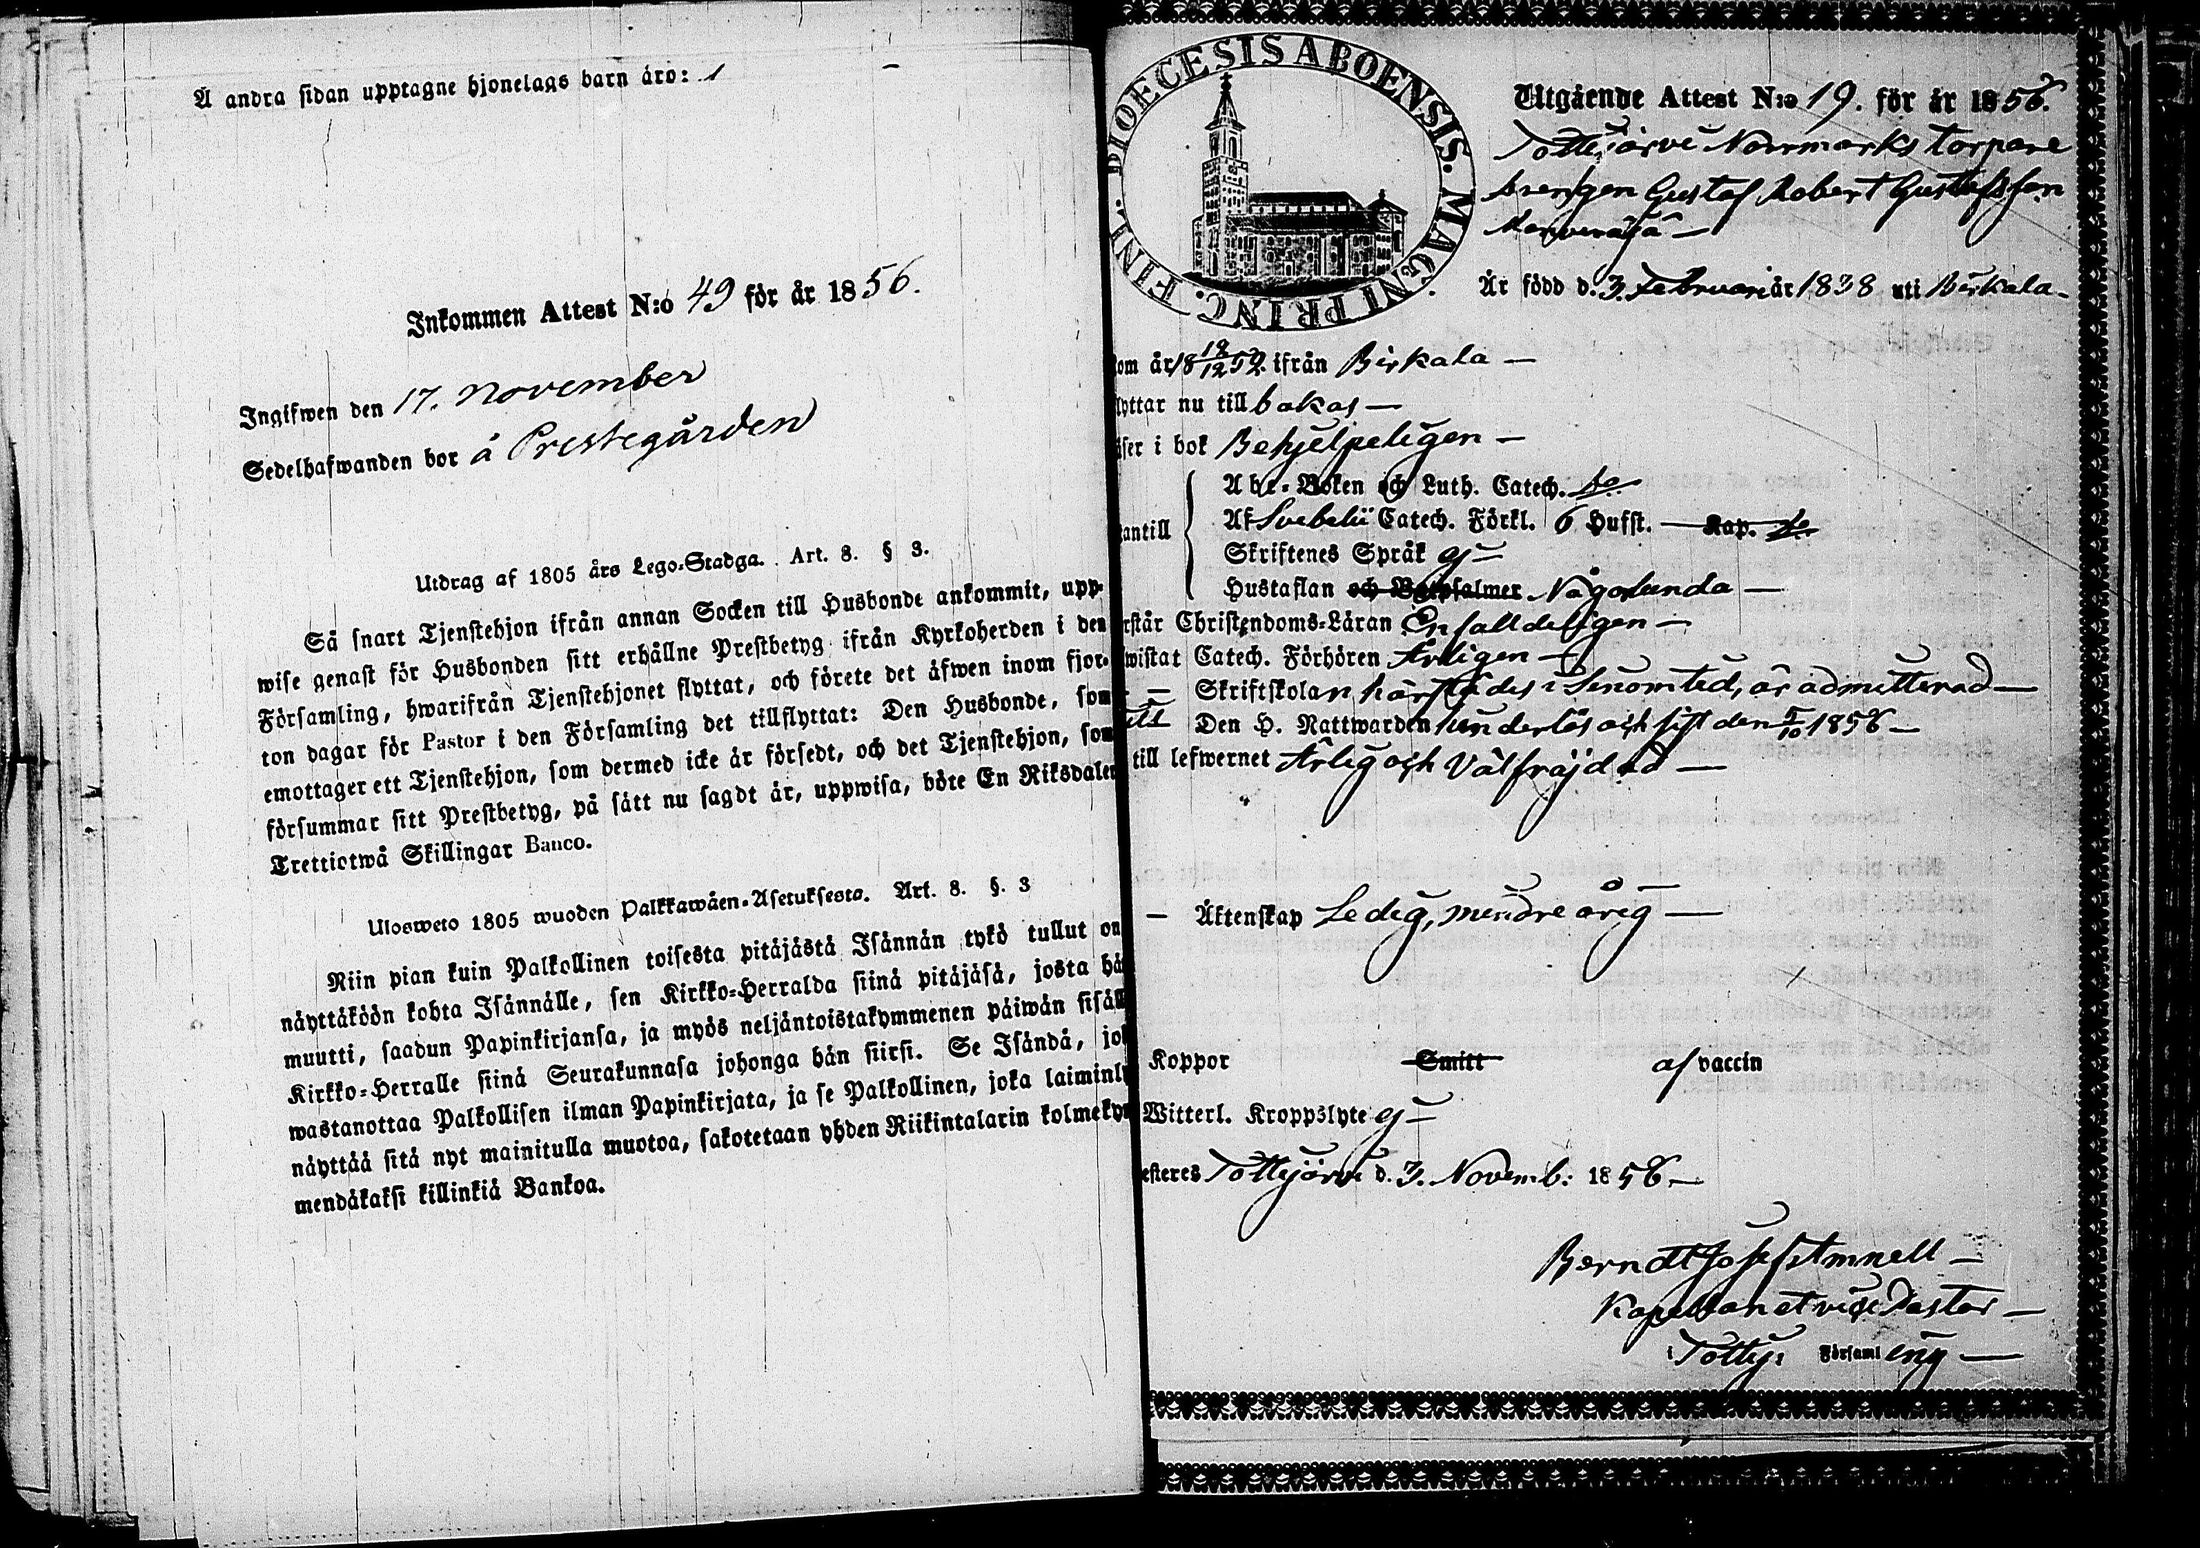 Å andra sidan upptagne hjonelags barn äro: 1
Inkommen Attest N:o 49 för år 1856.
Ingifwen den 17. November
Sedelhafwanden bor å Prestegården
Utdrag af 1805 års Lego-Stadga. Art. 8. § 3.
Så snart Tjenstehjon ifrån annan Socken till Husbonde ankommit, upp-
wise genast för Husbonden sitt erhållne Prestbetyg ifrån Kyrkoherden i den
Församling, hwarifrån Tjenstehjonet flyttat, och förete det äfwen inom fjor-
ton dagar för Pastor i den Församling det tillflyttat: Den Husbonde, som
emottager ett Tjenstehjon, som dermed icke är försedt, och det Tjenstehjon, som
försummar sitt Prestbetyg, på sätt nu sagdt är, uppwisa, böte En Riksdaler
Trettiotwå Skillingar Banco.
Ulosweto 1805 wuoden Palkkawäen-Asetuksesta. Art. 8. §. 3
Niin pian kuin Palkollinen toisesta pitäjästä Isännän tykö tullut on
näyttäköön kohta Isännälle, sen Kirkko-Herralda siinä pitäjäsä, josta hä
muutti, saadun Papinkirjansa, ja myös neljäntoistakymmenen päiwän sisäll
Kirkko-Herralle siinä Seurakunnasa johonga hän siirsi. Se Isändä, jo
wastanottaa Palkollisen ilman Papinkirjata, ja se Palkollinen, joka laiminly
näyttää sitä nyt mainitulla muotoa, sakotetaan yhden Riikintalarin kolmekym
mendäkaksi killinkiä Bankoa.
DIOECESIS ABOENSIS. MAGNI PRINC. FINL.
Utgående Attest N:o 19. för år 1856.
Tottijärvi Norrmarks torpare
drengen Gustaf Robert Gustafsson
Är född d. 3. Februari år 1838 uti Birkala
om år 18 19/12 52 ifrån Birkala
lyttar nu till bakas
äser i bok Behjelpeligen
antill
Abc-Boken och Luth. Catech. do
Af Svebelii Catech. Förkl. 6 Hufst. Kap. do
Skriftenes Språk ej
Hustaflan och Botpsalmer Någorlunda
rstår Christendoms-Läran Enfalldeligen
wistat Catech. Förhören Årligen
Skriftskolan härstädes i Senom tid, är admitterad
Den H. Nattwarden klanderlös och sist den 5/10 1856
till lefwernet Ärlig och Välfräjdad
Äktenskap Ledig, mindre årig
Koppor Smitt af vaccin
Witterl. Kroppslyte ej
esteres Tottijärvi d. 3. Novemb: 1856
Berndt Josef Amnell
Kapellan et vice Pastor
i Tottij: Församl ing